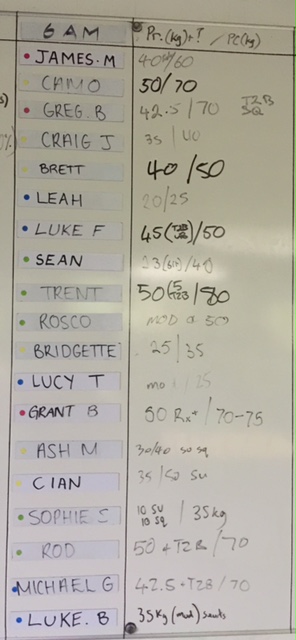 6 AM Pr.(kg)+? / PC(kg)
JAMES. M 40 /60
CAMO 50/70
GREG. B 42.5 / 70 T2B SQ
CRAIG J 35 / 40
BRETT 40 /50
LEAH 20/25
LUKE F 45 /50
SEAN /40
TRENT 50(5 T2B /80
ROSCO MOD @ 50
BRIDGETTE 25 | 35
LUCY T / 25
GRANT B 50 Rx* / 70-75
ASH M 30/40 50 SQ
CIAN 35 / 50 SU
SOPHIE S 10 SU 10 SQ | 35kg
ROD 50 + T2B / 70
MICHAEL G 42.5 + T2B / 70
LUKE. B 35kg (mod)